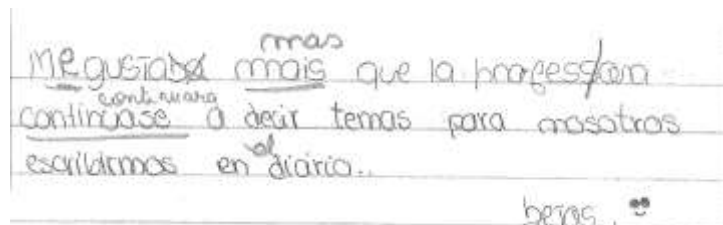 mas
Me gustaba mais que la professora
continuara
continuase a decir temas para nosotros
el
escribirmos en diario..
beijos.